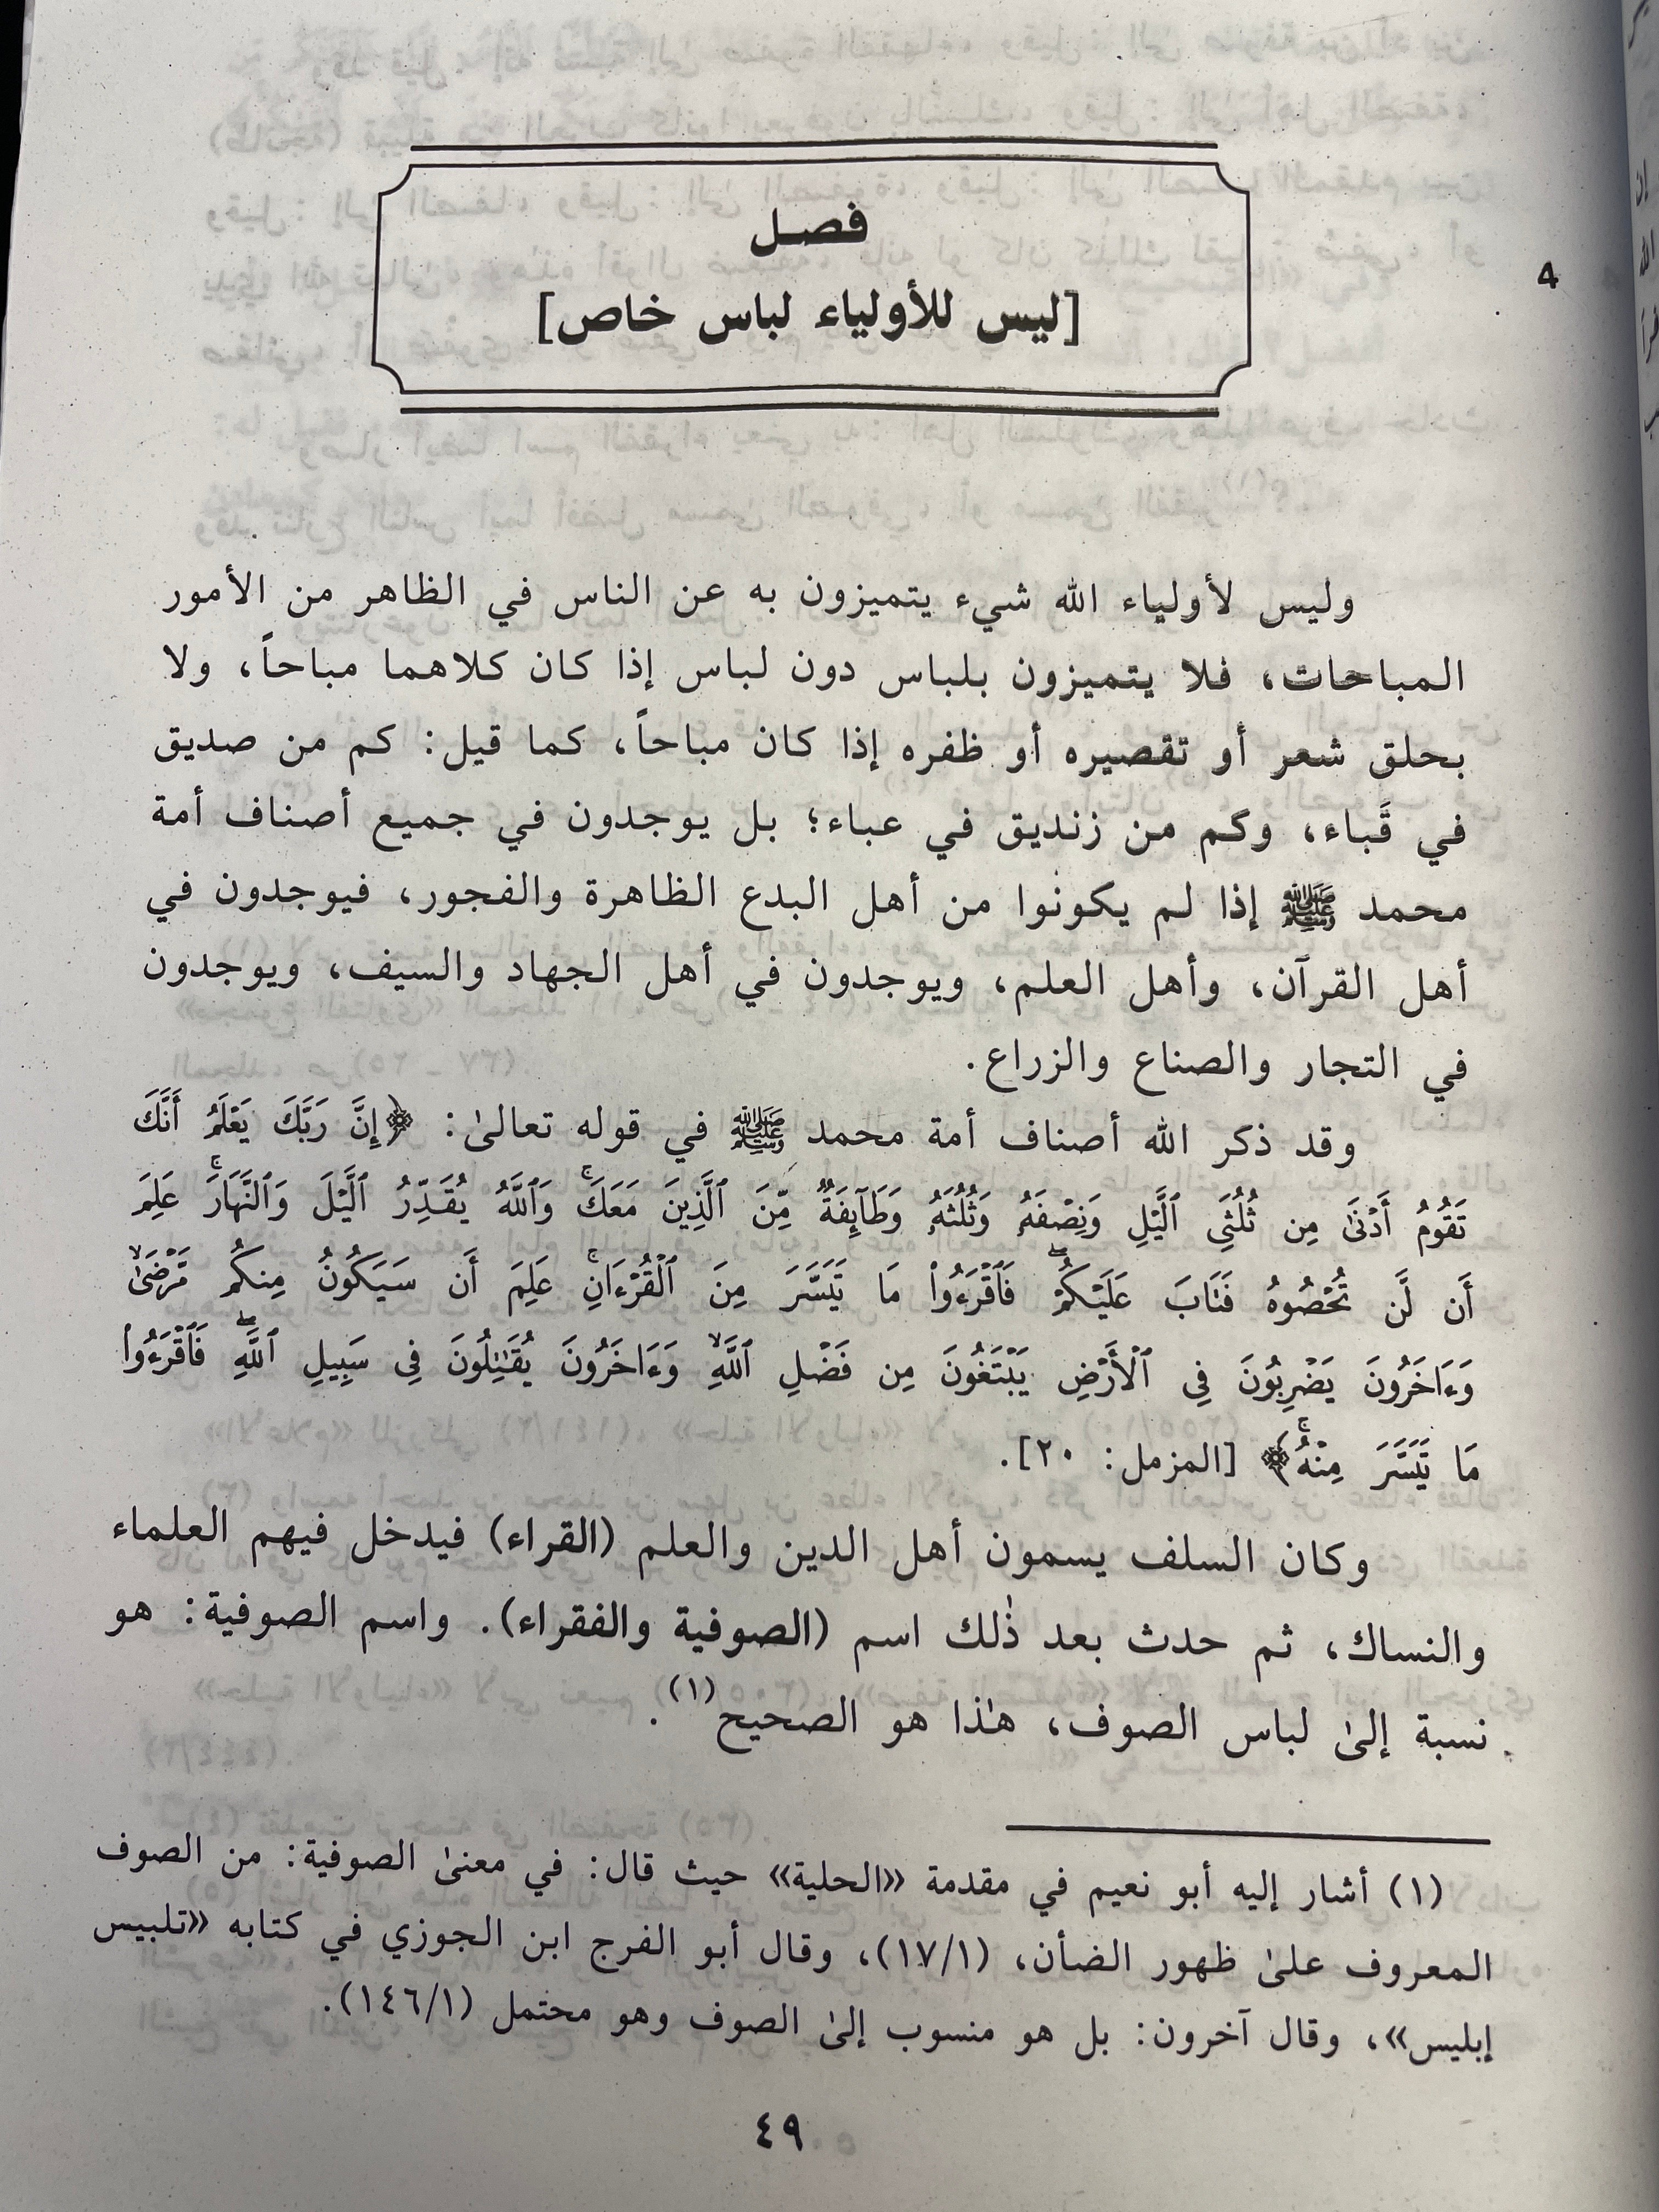 فصل
[ليس للأولياء لباس خاص]
4
وليس لأولياء الله شيء يتميزون به عن الناس في الظاهر من الأمور
المباحات، فلا يتميزون بلباس دون لباس إذا كان كلاهما مباحاً، ولا
بحلق شعر أو تقصيره أو ظفره إذا كان مباحاً، كما قيل: كم من صديق
في قَباء، وكم من زنديق في عباء؛ بل يوجدون في جميع أصناف أمة
محمد ﷺ إذا لم يكونوا من أهل البدع الظاهرة والفجور، فيوجدون في
أهل القرآن، وأهل العلم، ويوجدون في أهل الجهاد والسيف، ويوجدون
في التجار والصناع والزراع.
وقد ذكر الله أصناف أمة محمد ﷺ في قوله تعالىٰ: ﴿إِنَّ رَبَّكَ يَعْلَمُ أَنَّكَ
تَقُومُ أَدْنَىٰ مِن ثُلُثَيِ ٱلَّيْلِ وَنِصْفَهُۥ وَثُلُثَهُۥ وَطَآئِفَةٌ مِّنَ ٱلَّذِينَ مَعَكَۚ وَٱللَّهُ يُقَدِّرُ ٱلَّيْلَ وَٱلنَّهَارَۚ عَلِمَ
أَن لَّن تُحْصُوهُ فَتَابَ عَلَيْكُمْۖ فَٱقْرَءُوا۟ مَا تَيَسَّرَ مِنَ ٱلْقُرْءَانِۚ عَلِمَ أَن سَيَكُونُ مِنكُم مَّرْضَىٰۙ
وَءَاخَرُونَ يَضْرِبُونَ فِى ٱلْأَرْضِ يَبْتَغُونَ مِن فَضْلِ ٱللَّهِۙ وَءَاخَرُونَ يُقَٰتِلُونَ فِى سَبِيلِ ٱللَّهِۖ فَٱقْرَءُوا۟
مَا تَيَسَّرَ مِنْهُۚ﴾ [المزمل: ٢٠].
وكان السلف يسمون أهل الدين والعلم (القراء) فيدخل فيهم العلماء
والنساك، ثم حدث بعد ذٰلك اسم (الصوفية والفقراء). واسم الصوفية: هو
نسبة إلىٰ لباس الصوف، هٰذا هو الصحيح(١).
(١) أشار إليه أبو نعيم في مقدمة «الحلية» حيث قال: في معنىٰ الصوفية: من الصوف
المعروف علىٰ ظهور الضأن، (١٧/١)، وقال أبو الفرج ابن الجوزي في كتابه «تلبيس
إبليس»، وقال آخرون: بل هو منسوب إلىٰ الصوف وهو محتمل (١٤٦/١).
٤٩